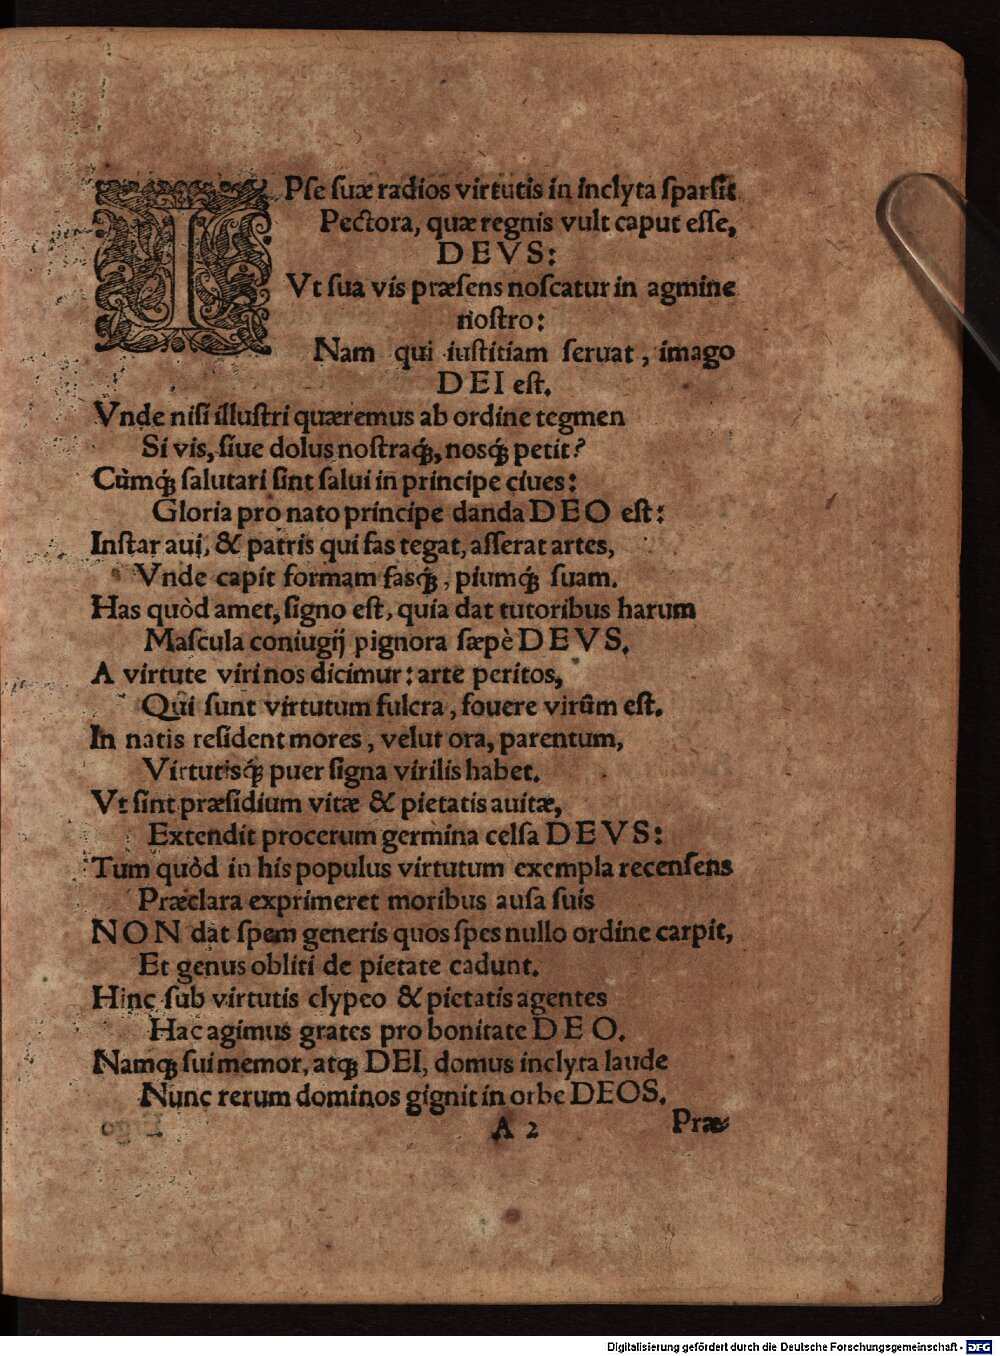 IPſe ſuæ radios virtutis in inclyta ſparſit
Pectora, quæ regnis vult caput eſſe,
DEVS:
Vt ſua vis præſens noſcatur in agmine
noſtro:
Nam qui iuſtitiam ſeruat, imago
DEI eſt.
Vnde niſi illuſtri quæremus ab ordine tegmen
Si vis, ſiue dolus noſtraq́;, nosq́; petit?
Cùmq́; ſalutari ſint ſalui in principe ciues:
Gloria pro nato principe danda DEO eſt:
Inſtar aui, & patris qui fas tegat, aſſerat artes,
Vnde capit formam fasq́;, piumq́; ſuam.
Has quòd amet, ſigno eſt, quia dat tutoribus harum
Maſcula coniugij pignora ſæpè DEVS.
A virtute viri nos dicimur: arte peritos,
Qui ſunt virtutum fulcra, fouere virûm eſt.
In natis reſident mores, velut ora, parentum,
Virtutisq́; puer ſigna virilis habet.
Vt ſint præſidium vitæ & pietatis auitæ,
Extendit procerum germina celſa DEVS:
Tum quòd in his populus virtutum exempla recenſens
Præclara exprimeret moribus auſa ſuis
NON dat ſpem generis quos ſpes nullo ordine carpit,
Et genus obliti de pietate cadunt.
Hinc ſub virtutis clypeo & pietatis agentes
Hac agimus grates pro bonitate DEO.
Namq; ſui memor, atq; DEI, domus inclyta laude
Nunc rerum dominos gignit in orbe DEOS.
A 2 Præ-
Digitalisierung gefördert durch die Deutsche Forschungsgemeinschaft - DFG